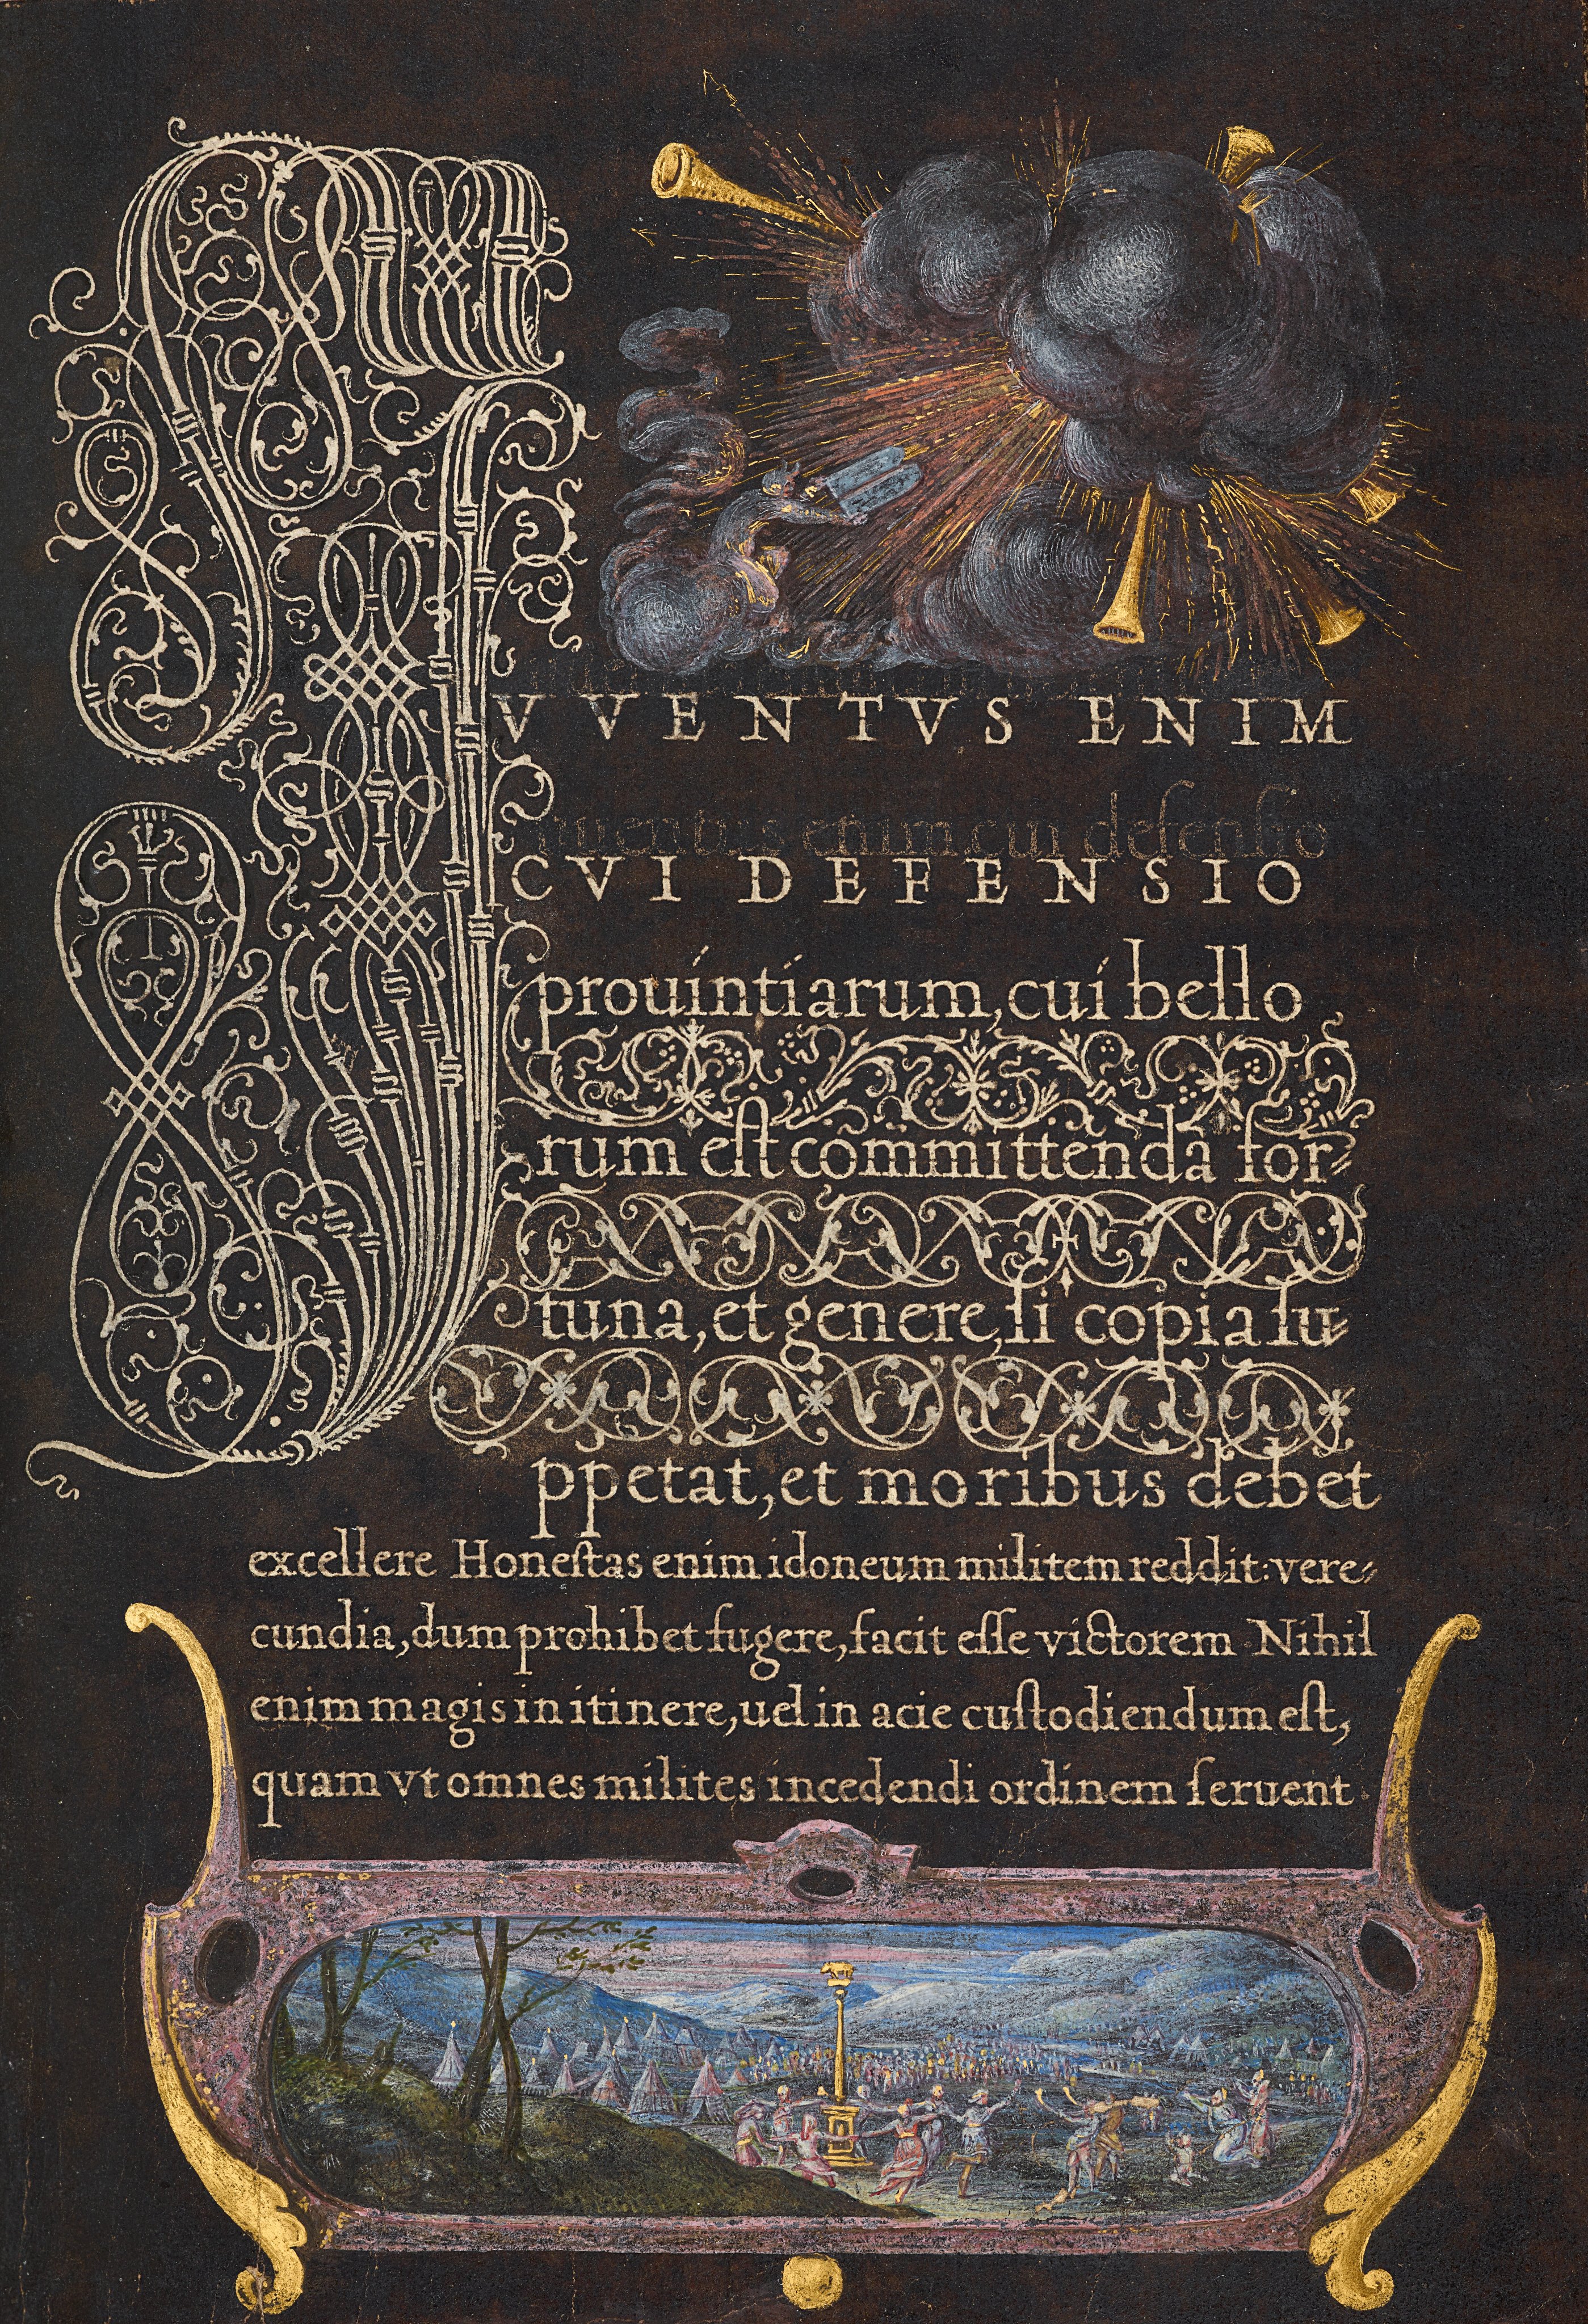 IVVENTVS ENIM
iuuentus enim cui defensio
CVI DEFENSIO
prouintiarum, cui bello
rum est committenda for⸗
tuna, et genere, si copia su⸗
ppetat, et moribus debet
excellere Honestas enim idoneum militem reddit: vere⸗
cundia, dum prohibet fugere, facit esse victorem Nihil
enim magis in itinere, uel in acie custodiendum est,
quam vt omnes milites incedendi ordinem seruent